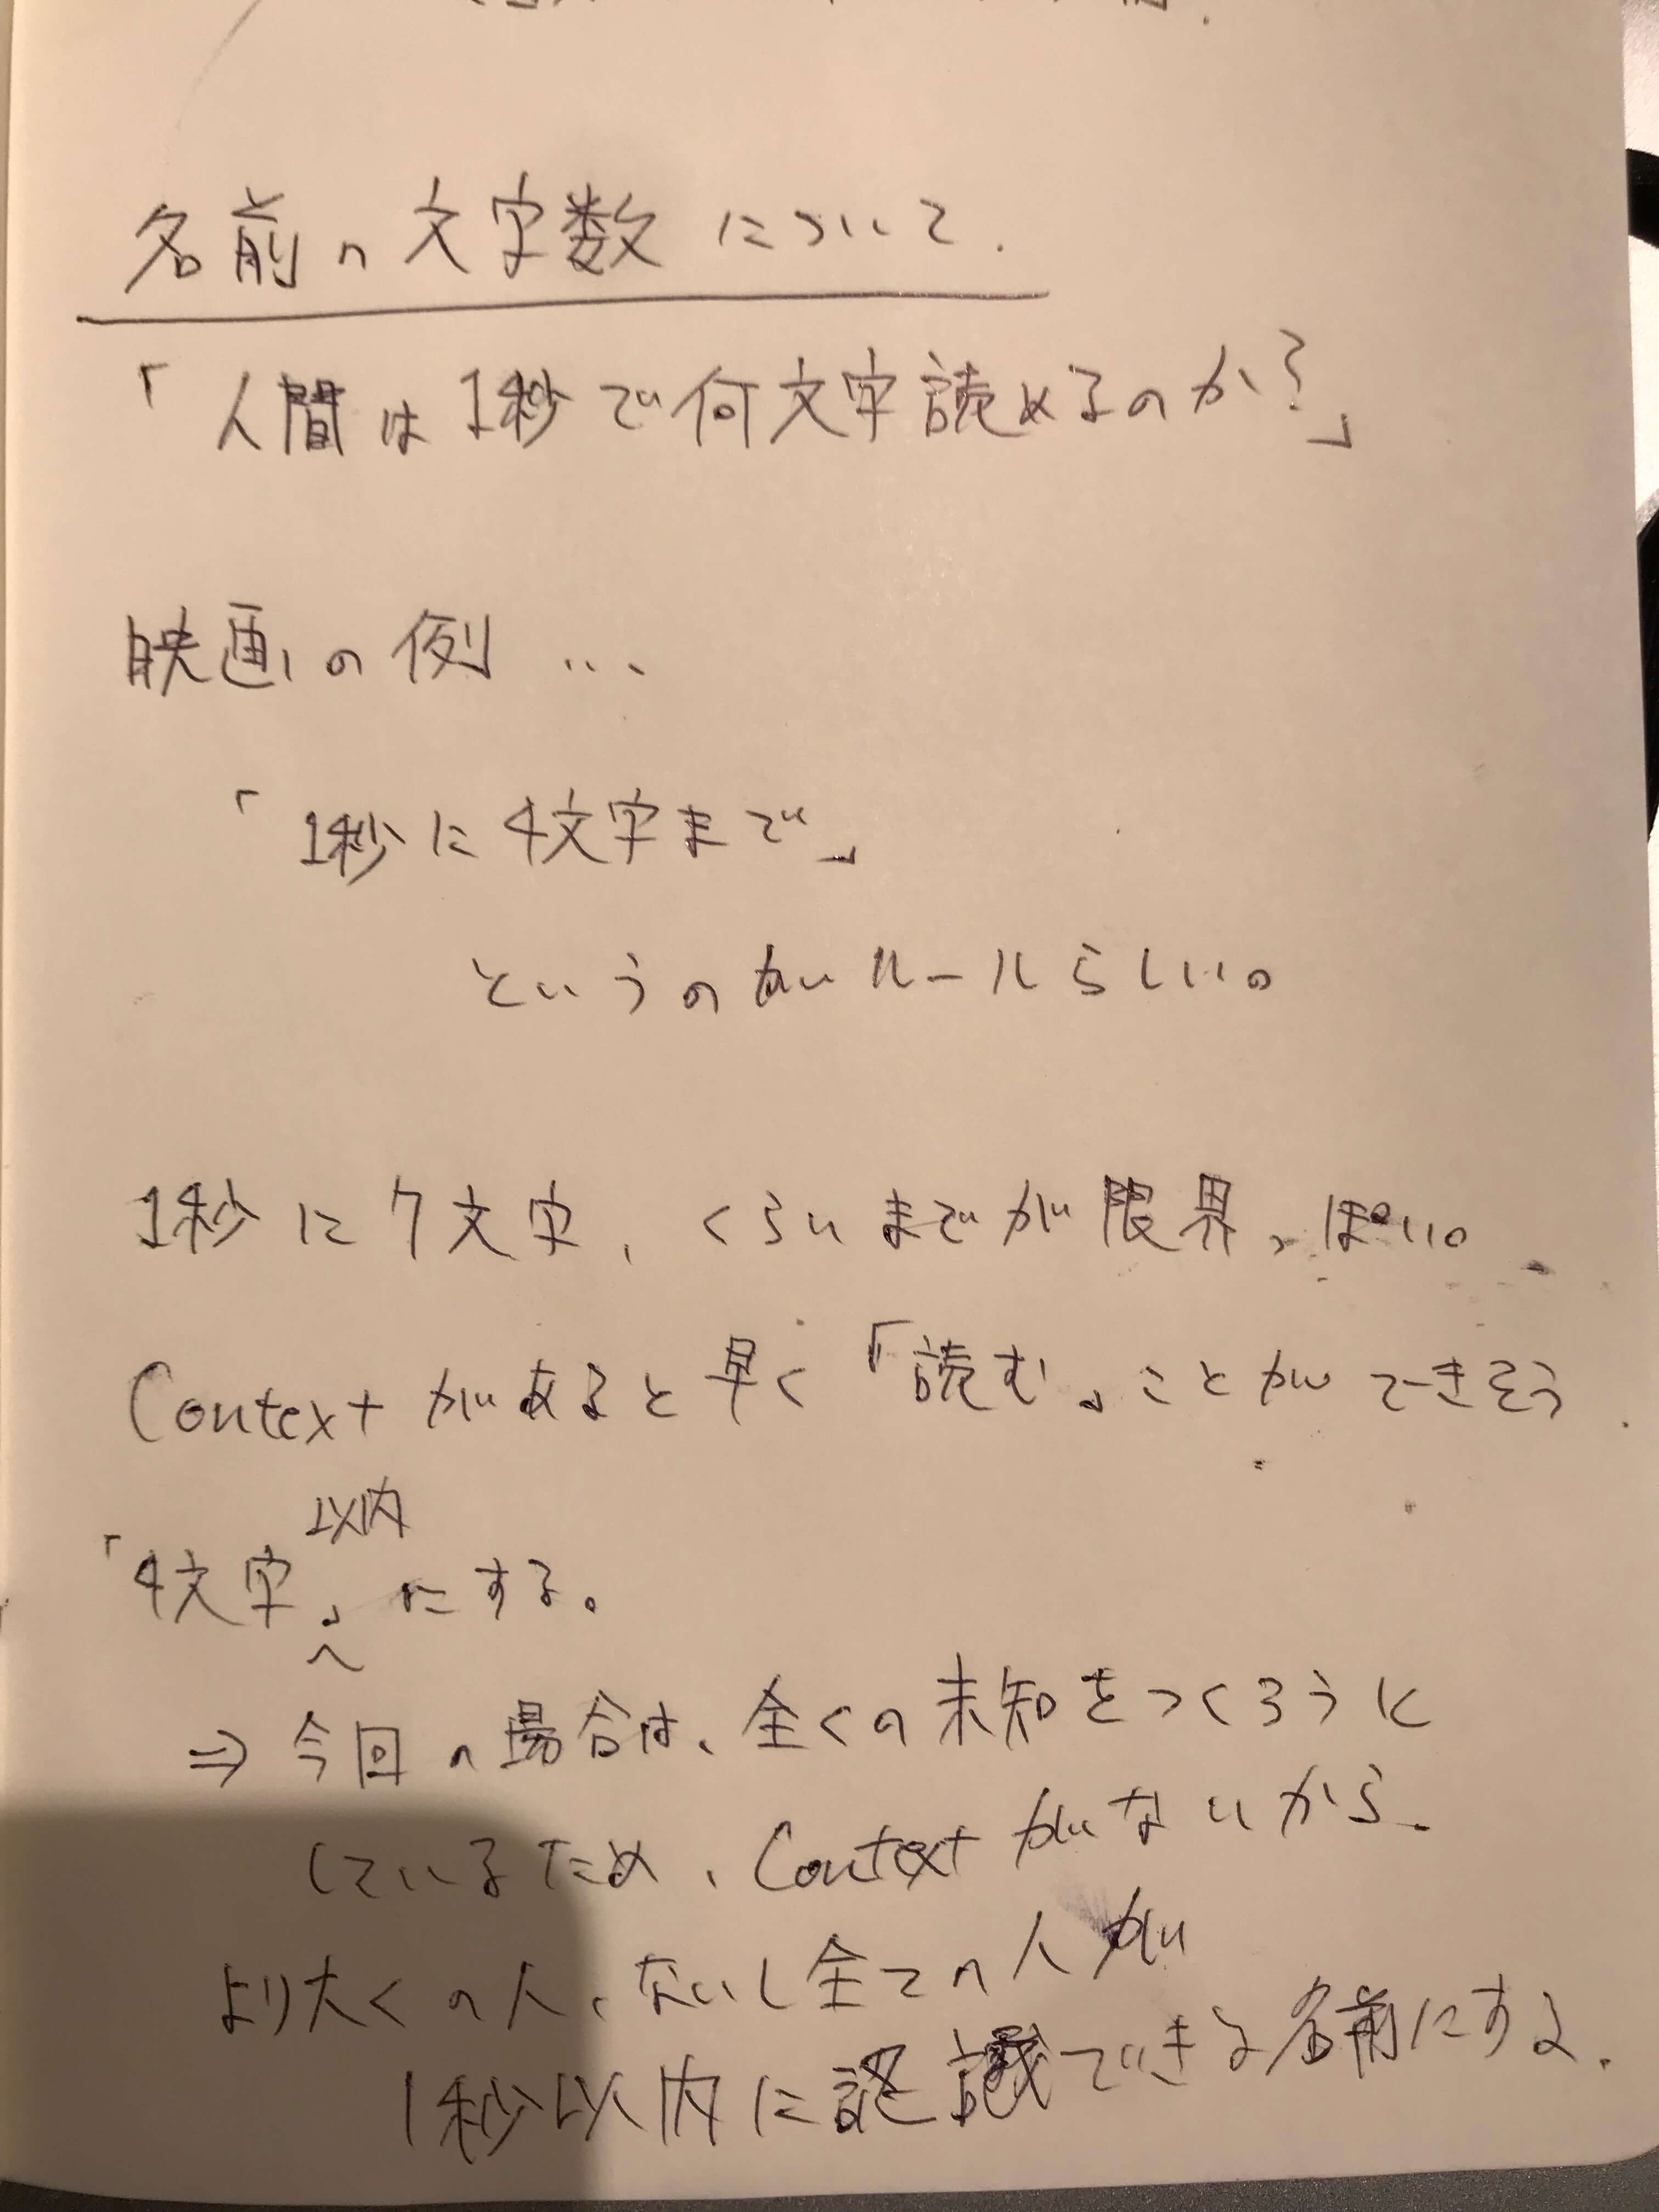 名前の文字数について.
「人間は1秒で何文字読めるのか?」
映画の例 ...
「1秒に4文字まで」
というのがルールらしい。
1秒に7文字、くらいまでが限界っぽい。
Contextがあると早く「読む」ことができそう
「4文字以内」にする。
⇒ 今回の場合は、全くの未知をつくろうと
しているため、Contextがないから、
より多くの人、ないし全ての人が
1秒以内に認識できる名前にする.